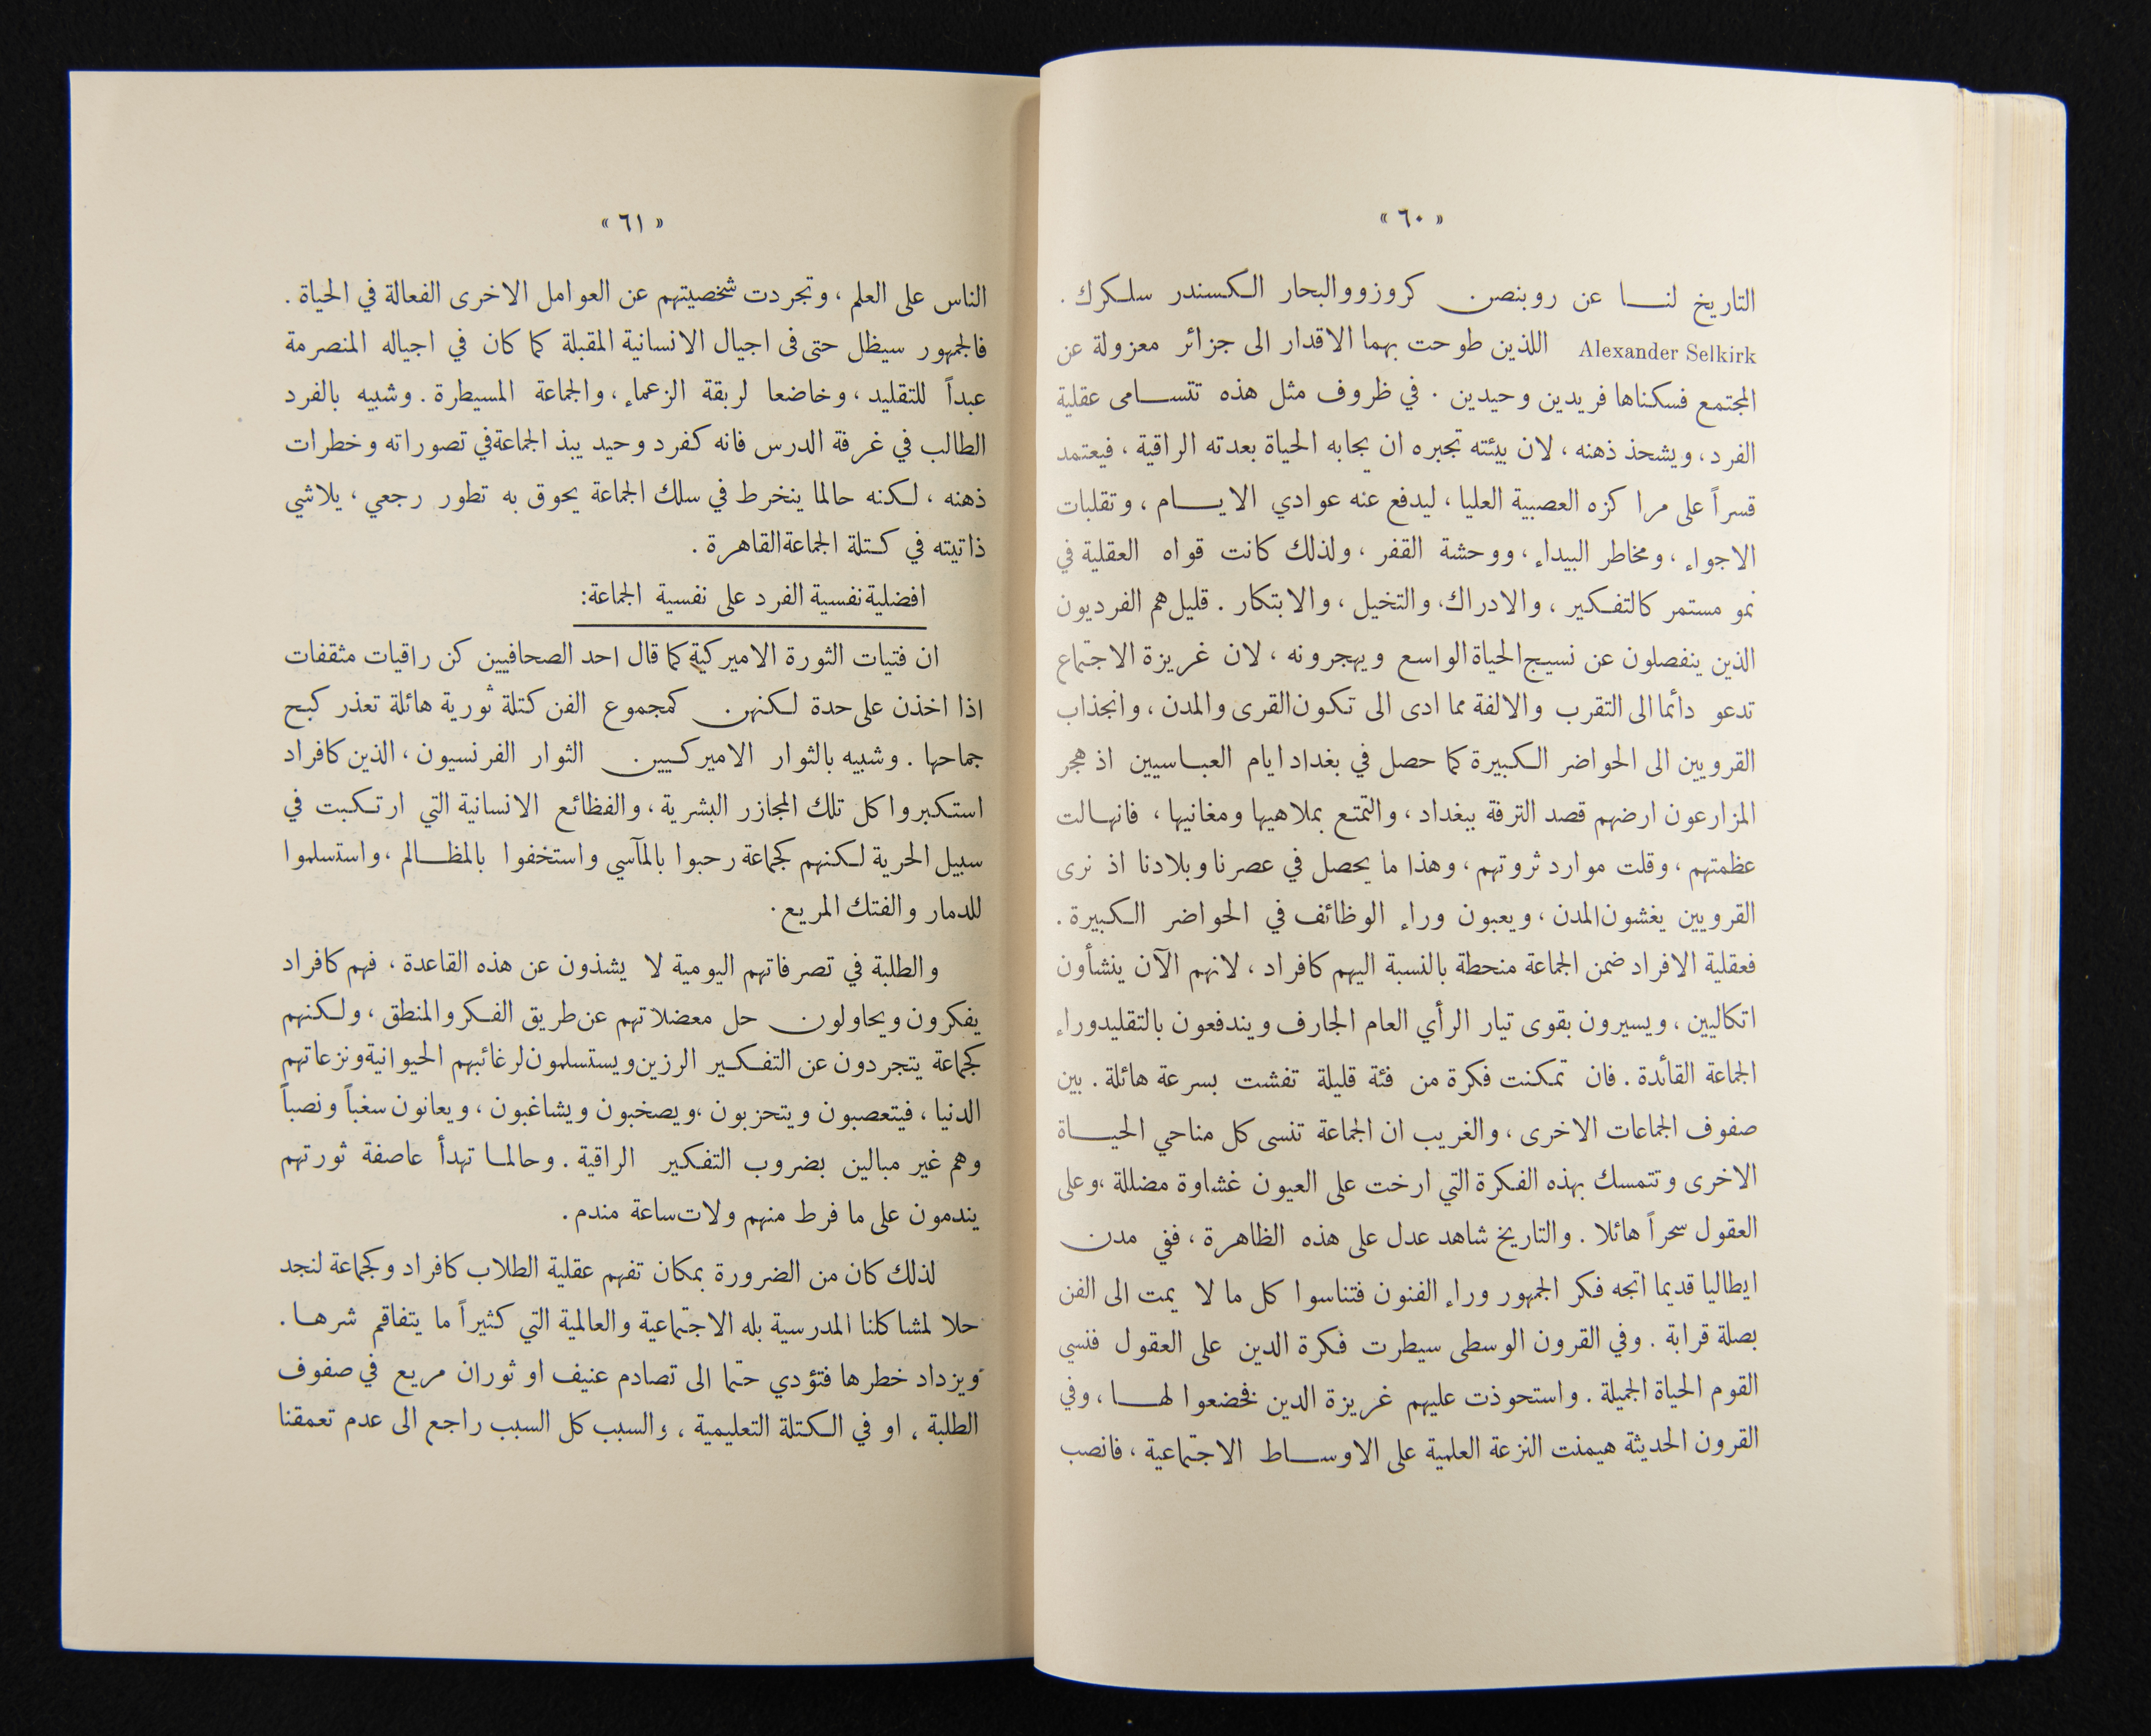 « ٦٠ »
التاريخ لنا عن روبنصن كروزو والبحار الكسندر سلكرك .
Alexander Selkirk اللذين طوحت بهما الاقدار الى جزائر معزولة عن
المجتمع فسكناها فريدين وحيدين . في ظروف مثل هذه تتسامى عقلية
الفرد ، ويشحذ ذهنه ، لان بيئته تجبره ان يجابه الحياة بعدته الراقية ، فيعتمد
قسراً على مراكزه العصبية العليا ، ليدفع عنه عوادي الايام ، وتقلبات
الاجواء ، ومخاطر البيداء ، ووحشة القفر ، ولذلك كانت قواه العقلية في
نمو مستمر كالتفكير ، والادراك ، والتخيل ، والابتكار . قليل هم الفرديون
الذين ينفصلون عن نسيج الحياة الواسع ويهجرونه ، لان غريزة الاجتماع
تدعو دائما الى التقرب والالفة مما ادى الى تكون القرى والمدن ، وانجذاب
القرويين الى الحواضر الكبيرة كما حصل في بغداد ايام العباسيين اذ هجر
المزارعون ارضهم قصد الترفة ببغداد ، والتمتع بملاهيها ومغانيها ، فانهالت
عظمتهم ، وقلت موارد ثروتهم ، وهذا ما يحصل في عصرنا وبلادنا اذ نرى
القرويين يغشون المدن ، ويعبون وراء الوظائف في الحواضر الكبيرة .
فعقلية الافراد ضمن الجماعة منحطة بالنسبة اليهم كافراد ، لانهم الآن ينشأون
اتكاليين ، ويسيرون بقوى تيار الرأي العام الجارف ويندفعون بالتقليد وراء
الجماعة القائدة . فان تمكنت فكرة من فئة قليلة تفشت بسرعة هائلة . بين
صفوف الجماعات الاخرى ، والغريب ان الجماعة تنسى كل مناحي الحياة
الاخرى وتتمسك بهذه الفكرة التي ارخت على العيون غشاوة مضللة ، وعلى
العقول سحراً هائلا . والتاريخ شاهد عدل على هذه الظاهرة ، ففي مدن
ايطاليا قديما اتجه فكر الجمهور وراء الفنون فتناسوا كل ما لا يمت الى الفن
بصلة قرابة . وفي القرون الوسطى سيطرت فكرة الدين على العقول فنسي
القوم الحياة الجميلة . واستحوذت عليهم غريزة الدين فخضعوا لها ، وفي
القرون الحديثة هيمنت النزعة العلمية على الاوساط الاجتماعية ، فانصب
« ٦١ »
الناس على العلم ، وتجردت شخصيتهم عن العوامل الاخرى الفعالة في الحياة .
فالجمهور سيظل حتى فى اجيال الانسانية المقبلة كما كان في اجياله المنصرمة
عبداً للتقليد ، وخاضعا لربقة الزعماء ، والجماعة المسيطرة . وشبيه بالفرد
الطالب في غرفة الدرس فانه كفرد وحيد يبذ الجماعة في تصوراته وخطرات
ذهنه ، لكنه حالما ينخرط في سلك الجماعة يحوق به تطور رجعي ، يلاشي
ذاتيته في كتلة الجماعة القاهرة .
افضلية نفسية الفرد على نفسية الجماعة :
ان فتيات الثورة الاميركية كما قال احد الصحافيين كن راقيات مثقفات
اذا اخذن على حدة لكنهن كمجموع الفن كتلة ثورية هائلة تعذر كبح
جماحها . وشبيه بالثوار الاميركيين الثوار الفرنسيون ، الذين كافراد
استكبروا كل تلك المجازر البشرية ، والفظائع الانسانية التي ارتكبت في
سبيل الحرية لكنهم كجماعة رحبوا بالمآسي واستخفوا بالمظالم ، واستسلموا
للدمار والفتك المريع .
والطلبة في تصرفاتهم اليومية لا يشذون عن هذه القاعدة ، فهم كافراد
يفكرون ويحاولون حل معضلاتهم عن طريق الفكر والمنطق ، ولكنهم
كجماعة يتجردون عن التفكير الرزين ويستسلمون لرغائبهم الحيوانية ونزعاتهم
الدنيا ، فيتعصبون ويتحزبون ، ويصخبون ويشاغبون ، ويعانون سغباً ونصباً
وهم غير مبالين بضروب التفكير الراقية . وحالما تهدأ عاصفة ثورتهم
يندمون على ما فرط منهم ولات ساعة مندم .
لذلك كان من الضرورة بمكان تفهم عقلية الطلاب كافراد وكجماعة لنجد
حلا لمشاكلنا المدرسية بله الاجتماعية والعالمية التي كثيراً ما يتفاقم شرها .
ويزداد خطرها فتؤدي حتما الى تصادم عنيف او ثوران مريع في صفوف
الطلبة ، او في الكتلة التعليمية ، والسبب كل السبب راجع الى عدم تعمقنا